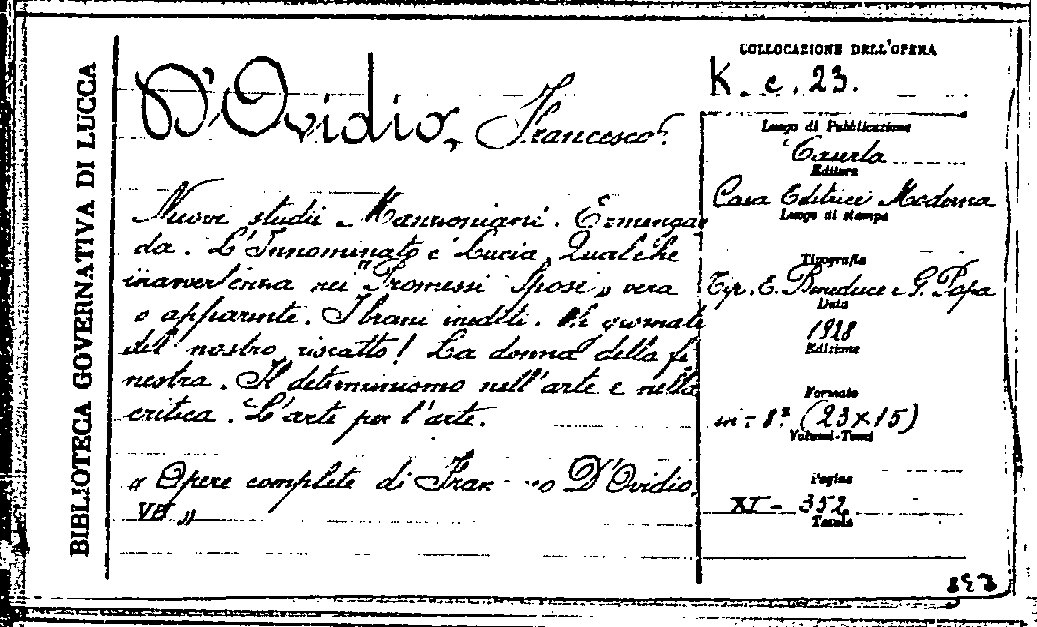 BIBLIOTECA GOVERNATIVA DI LUCCA
D'Ovidio, Francesco.
Nuovi studii Manzoniani. Ermengar
da. L'Innominato e Lucia. Qualche
inavvertenza nei "Promessi Sposi" vera
o apparente. I brani inediti. Oh giornate
del nostro riscatto! La donna della fi
nestra. Il determinismo nell'arte e nella
critica. L'arte per l'arte.
"Opere complete di D'Ovidio.
COLLOCAZIONE DELL'OPERA
K. c. 23.
Luogo di Pubblicazione
Caserta
Editore
Casa Editrice Moderna
Luogo di stampa
Tipografia
Tip. E. Beneduce e G. Papa
Data
1928
Edizione
Formato
in-8° (23x15)
Volumi-Tomi
Pagine
XI - 352
Tavole